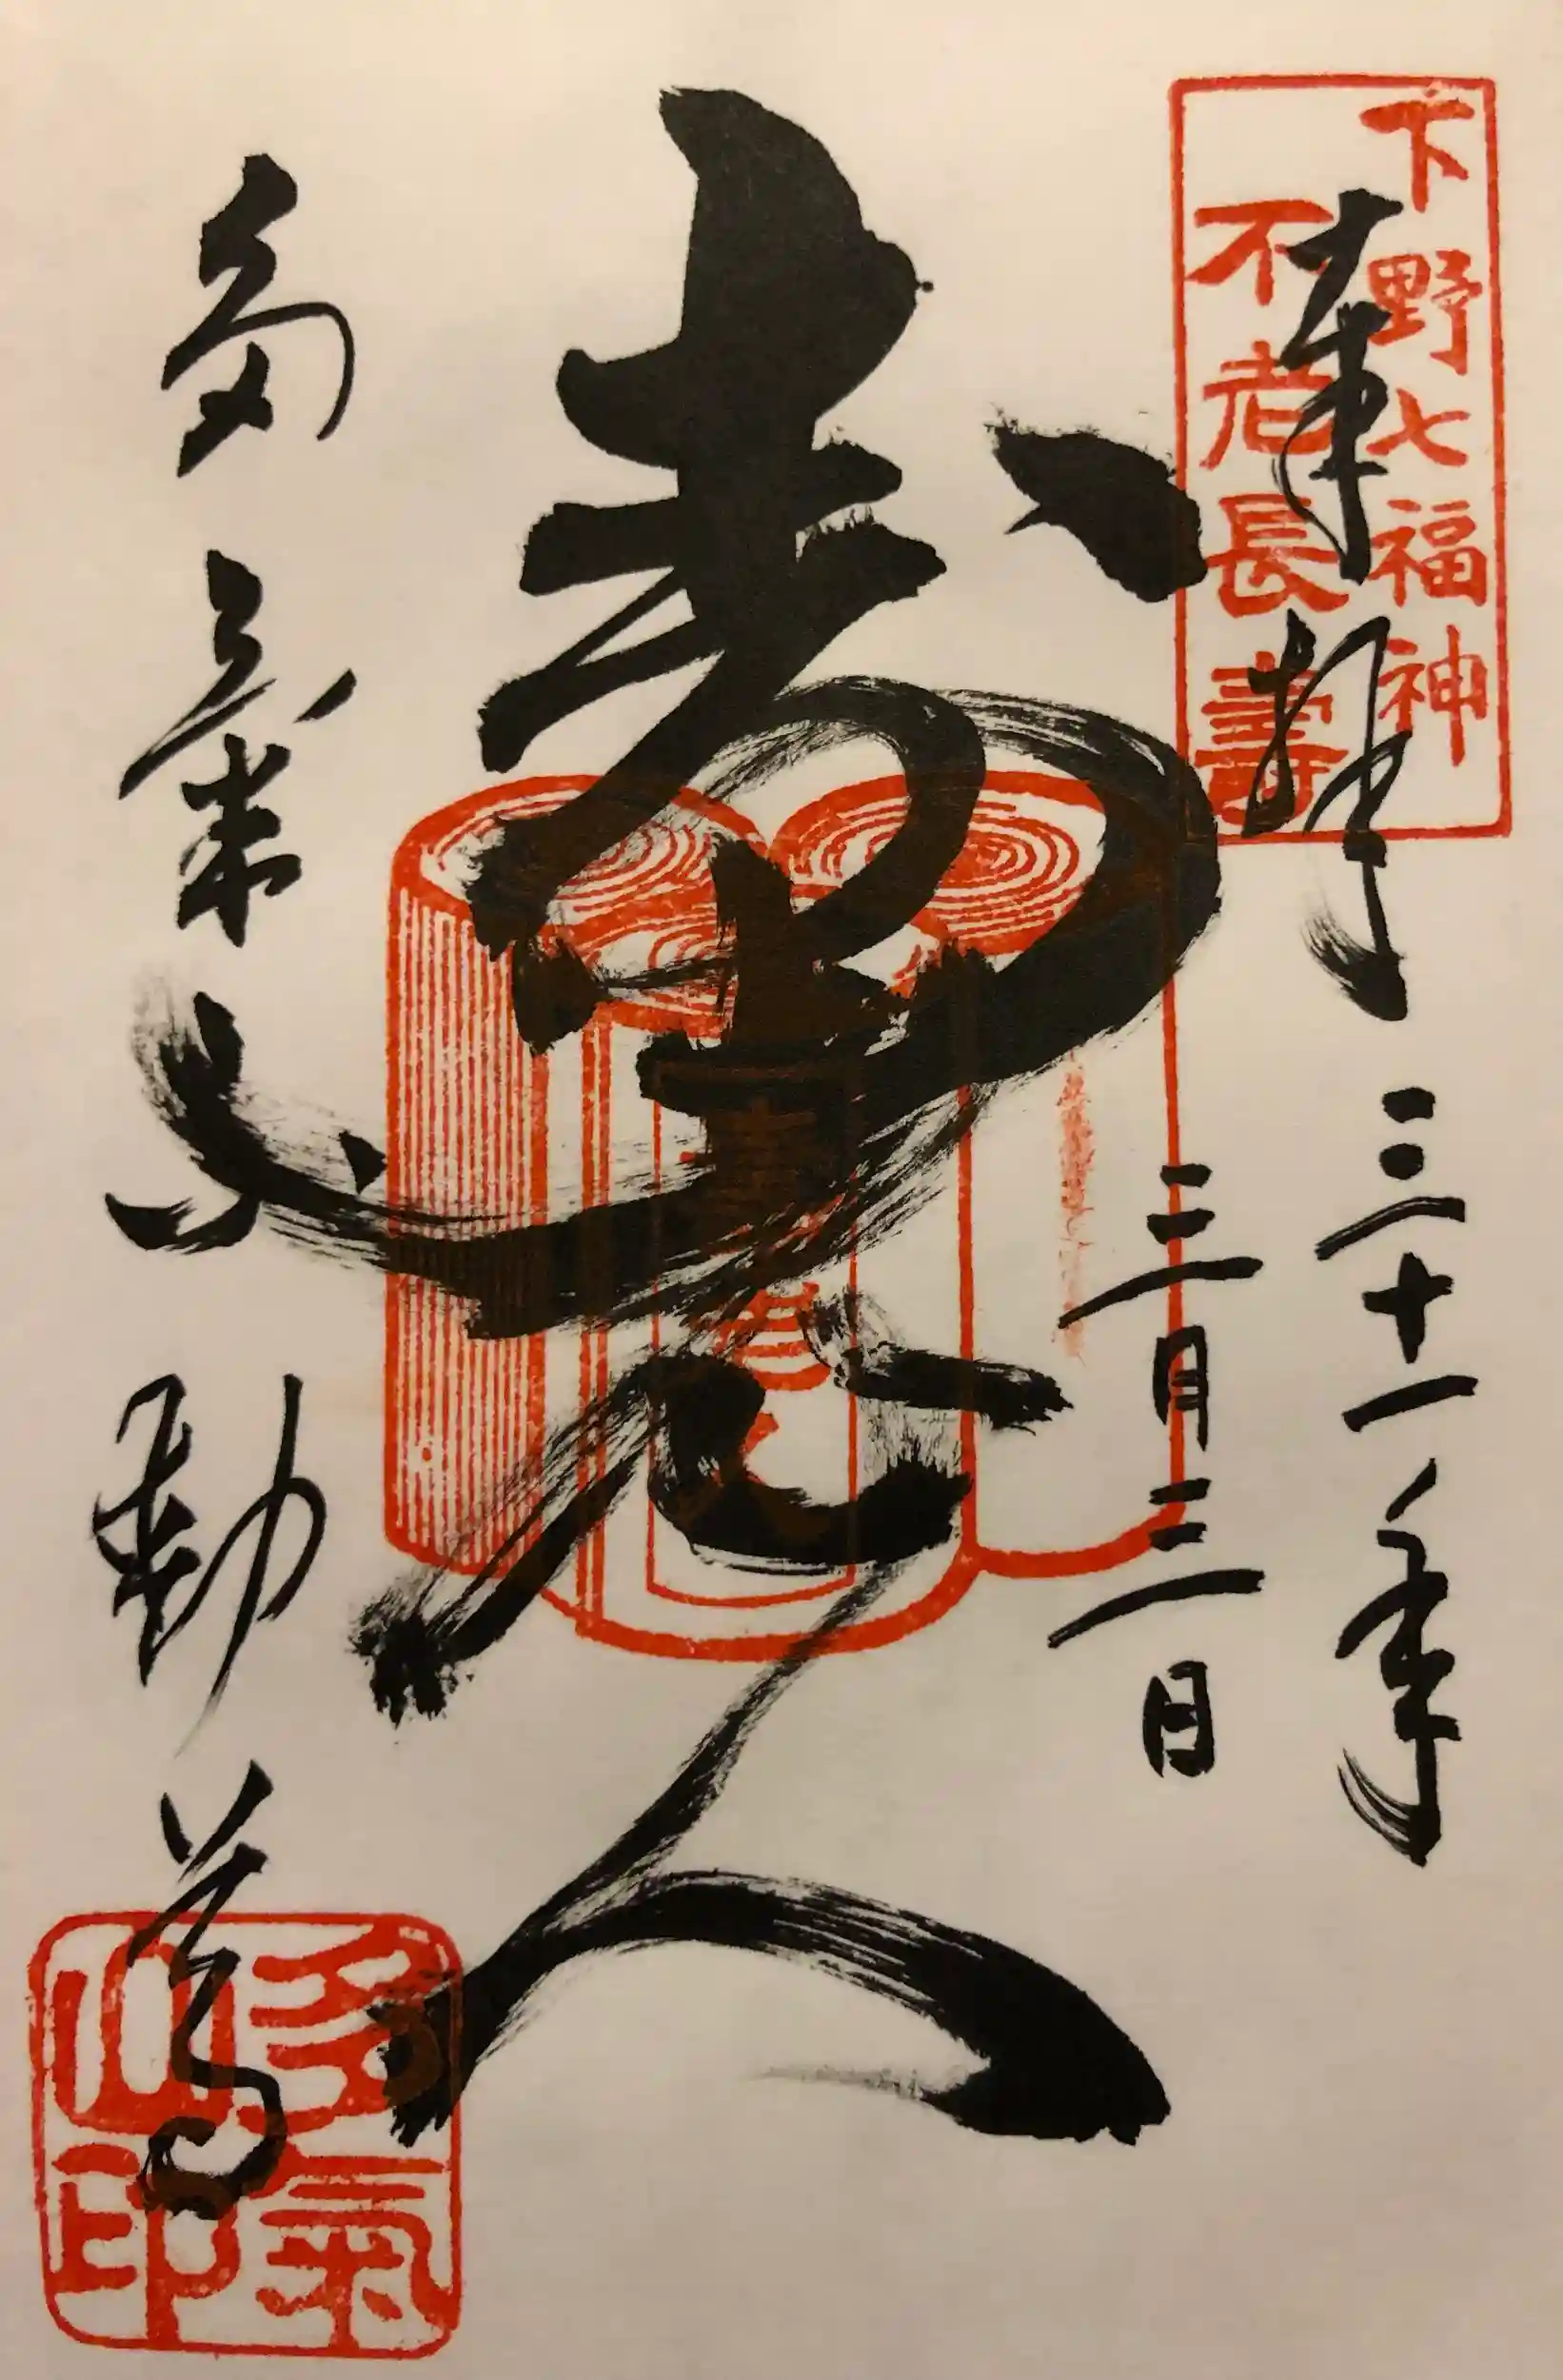 下野七福神
不老長壽
奉拝
三十一年
三月三日
寿老人
多氣不動尊
多氣山印